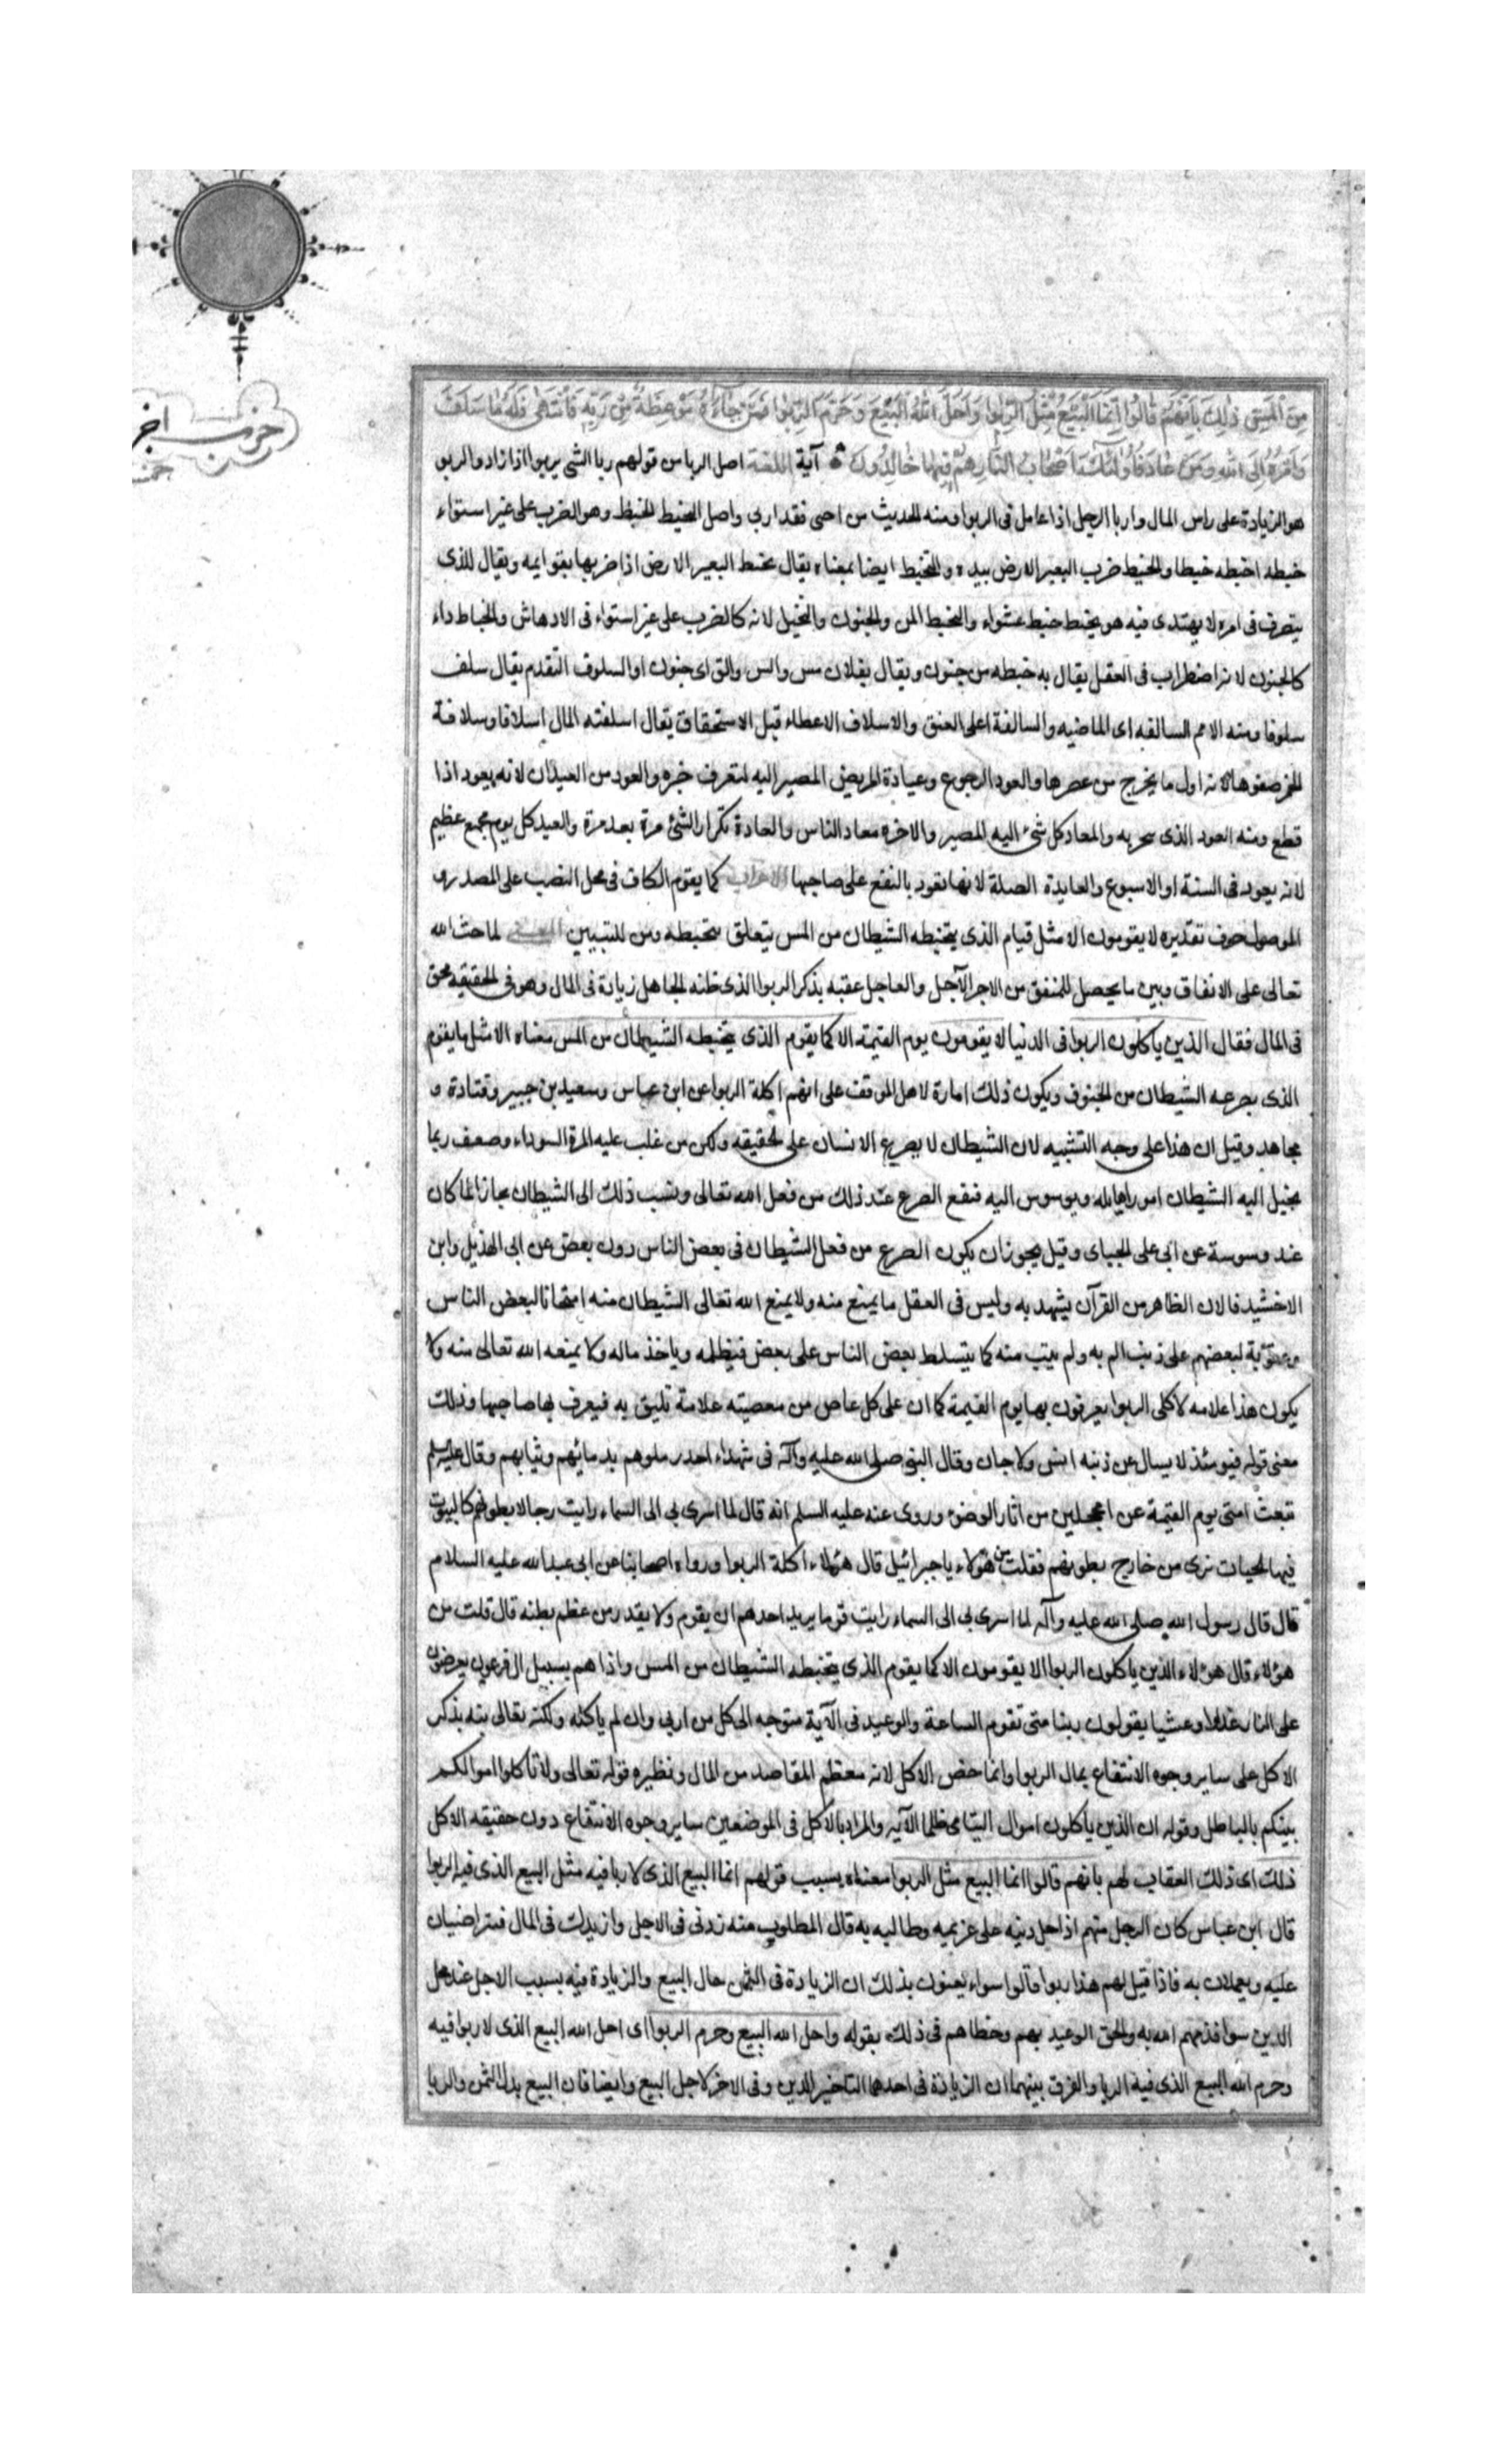 مِنَ الْمَسِّ ذٰلِكَ بِاَنَّهُمْ قَالُوا اِنَّمَا الْبَيْعُ مِثْلُ الرِّبٰوا وَاَحَلَّ اللهُ الْبَيْعَ وَحَرَّمَ الرِّبٰوا فَمَنْ جَاءَهُ مَوْعِظَةٌ مِنْ رَبِّهِ فَانْتَهٰى فَلَهُ مَا سَلَفَ
وَاَمْرُهُ اِلَى اللهِ وَمَنْ عَادَ فَاُولٰئِكَ اَصْحَابُ النَّارِ هُمْ فِيهَا خَالِدُونَ آية اللغة اصل الربا من قولهم ربا الشى يربوا اذا زاد والربو
هو الزيادة على راس المال واربا الرجل اذا عامل فى الربوا ومنه الحديث من اجبى فقد اربى واصل الخبط الخبط وهو الضرب على غير استواء
خبطه اخبطه خبطا والخبط ضرب البعير الارض بيده والتخبط ايضا بمعناه يقال تخبط البعير الارض اذا ضربها بقوايمه ويقال للذى
يتصرف فى امره لا يهتدى فيه هو يخبط خبط عشواء والتخبط المس والجنون والتخيل لانه كالضرب على غير استواء فى الادهاش والخباط داء
كالجنون لانه اضطراب فى العقل يقال به خبطه من جنون ويقال بفلان مس والس والق اى جنون او السلوف التقدم يقال سلف
سلوفا ومنه الامم السالفه اى الماضيه والسالفة اعلى العنق والاسلاف الاعطاء قبل الاستحقاق يقال اسلفته المال اسلافا وسلافة
الخمر صفوها لانه اول ما يخرج من عصرها والعود الرجوع وعيادة المريض المصير اليه لتعرف خبره والعود من العيدان لانه يعود اذا
قطع ومنه العود الذى يتبخر به والمعاد كل شئ اليه المصير والاخره معاد الناس والعادة تكرار الشئ مرة بعد مرة والعيد كل يوم مجمع عظيم
لانه يعود فى السنة او الاسبوع والعايدة الصلة لانها تعود بالنفع على صاحبها الاعراب كما يقوم الكاف فى محل النصب على المصدر وما
الموصول حرف تقديره لا يقومون الا مثل قيام الذى يتخبطه الشيطان من المس يتعلق بتخبطه ومن للتبيين المعنى لما حث الله
تعالى على الانفاق وبين ما يحصل للمنفق من الاجر الآجل والعاجل عقبه بذكر الربوا الذى ظنه الجاهل زيادة فى المال وهو فى الحقيقه محق
فى المال فقال الذين ياكلون الربوا فى الدنيا لا يقومون يوم القيمة الا كما يقوم الذى يتخبطه الشيطان من المس معناه الا مثل ما يقوم
الذى يصرعه الشيطان من الجنون ويكون ذلك امارة لاهل الموقف على انهم اكلة الربوا عن ابن عباس وسعيد بن جبير وقتادة و
مجاهد وقيل ان هذا على وجه التشبيه لان الشيطان لا يصرع الانسان على الحقيقه ولكن من غلب عليه المرة السوداء وضعف ربما
يخيل اليه الشيطان امورا هايله ويوسوس اليه فيقع الصرع عند ذلك من فعل الله تعالى ونسب ذلك الى الشيطان مجازا لما كان
عند وسوسة عن ابى على الجبياى وقيل يجوز ان يكون الصرع من فعل الشيطان فى بعض الناس دون بعض عن ابى الهذيل وابن
الاخشيد قالا لان الظاهر من القرآن يشهد به وليس فى العقل ما يمنع منه ولا يمنع الله تعالى الشيطان منه امتحانا لبعض الناس
وعقوبة لبعضهم على ذنب الم به ولم يتب منه كما يتسلط بعض الناس على بعض فيظلمه وياخذ ماله ولا يمنعه الله تعالى منه ولا
يكون هذا علامه لاكلى الربوا يعرفون بها يوم القيمة كما ان على كل عاص من معصيته علامة تليق به فيعرف بها صاحبها وذلك
معنى قوله فيومئذ لا يسال عن ذنبه انس ولا جان وقال النبى صلى الله عليه وآله فى شهداء احد زملوهم بدمائهم وثيابهم وقال عليه السلم
تبعث امتى يوم القيمة غرا محجلين من اثار الوضوء وروى عنه عليه السلم انه قال لما اسرى بى الى السماء رايت رجالا بطونهم كالبيوت
فيها الحيات ترى من خارج بطونهم فقلت من هؤلاء يا جبرائيل قال هؤلاء اكلة الربوا ورواه اصحابنا عن ابى عبد الله عليه السلام
قال قال رسول الله صلى الله عليه وآله لما اسرى بى الى السماء رايت قوما يريد احدهم ان يقوم ولا يقدر من عظم بطنه قال قلت من
هؤلاء قال هؤلاء الذين ياكلون الربوا لا يقومون الا كما يقوم الذى يتخبطه الشيطان من المس واذا هم بسبيل ال فرعون يعرضون
على النار غدوا وعشيا يقولون ربنا متى تقوم الساعة والوعيد فى الآية متوجه الى كل من اربى وان لم ياكله ولكنه تعالى نبه بذكر
الاكل على ساير وجوه الانتفاع بمال الربوا وانما خص الاكل لانه معظم المقاصد من المال ونظيره قوله تعالى ولا تأكلوا اموالكم
بينكم بالباطل وقوله ان الذين يأكلون اموال اليتامى ظلما الآيه والمراد بالاكل فى الموضعين ساير وجوه الانتفاع دون حقيقه الاكل
ذلك اى ذلك العقاب لهم بانهم قالوا انما البيع مثل الربوا معناه بسبب قولهم انما البيع الذى لا ربا فيه مثل البيع الذى فيه الربوا
قال ابن عباس كان الرجل منهم اذا حل دينه على غريمه وطالبه به قال المطلوب منه زدنى فى الاجل وازيدك فى المال فيتراضيان
عليه ويعملان به فاذا قيل لهم هذا ربوا قالوا سواء يعنون بذلك ان الزيادة فى الثمن حال البيع والزيادة فيه بسبب الاجل عند محل
الدين سوا فذمهم الله به والحق الوعيد بهم وخطاهم فى ذلك بقوله واحل الله البيع وحرم الربوا اى احل الله البيع الذى لا ربوا فيه
وحرم الله البيع الذى فيه الربا والفرق بينهما ان الزيادة فى احدهما لتاخير الدين وفى الاخر لاجل البيع وايضا فان البيع بدل الثمن والربا
حزب